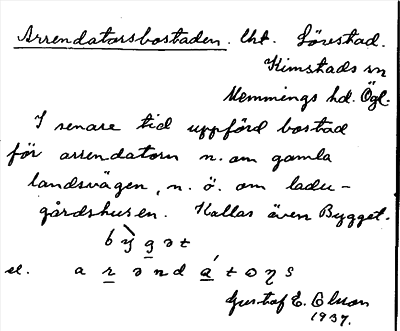 Arrendatorsbostaden. lht. Lövestad.
Kimstads sn
Memmings hd. Ögl.
I senare tid uppförd bostad
för arrendatorn n. om gamla
landsvägen, n. ö. om ladu-
gårdshusen. Kallas även Bygget.
b y g ə t
el. a r ə n d a t ɷ ʂ
Gustaf E. Olsson
1937.